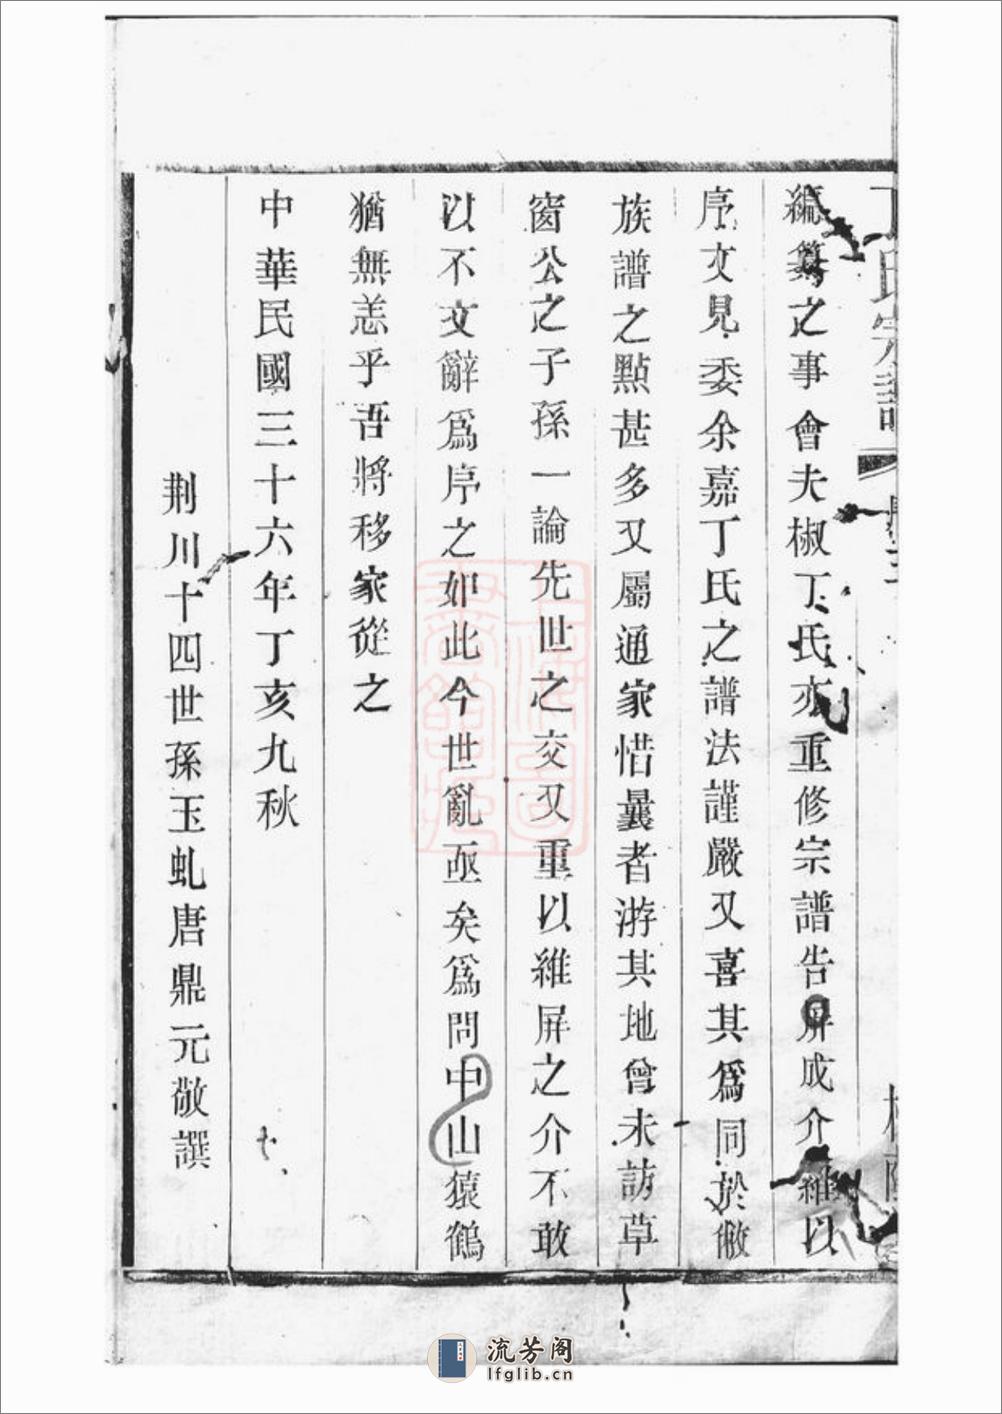 丁氏宗譜
編纂之事會夫椒丁氏亦重修宗譜告屏成介維以
序文見委余嘉丁氏之譜法謹嚴又喜其爲同於敝
族譜之點甚多又屬通家惜曩者游其地曾未訪草
窗公之子孫一論先世之交又重以維屏之介不敢
以不文辭爲序之如此今世亂亟矣爲問中山猿鶴
猶無恙乎吾將移家從之
中華民國三十六年丁亥九秋
荆川十四世孫玉虬唐鼎元敬譔
上海圖
書館藏
流芳阁
lfglib.cn